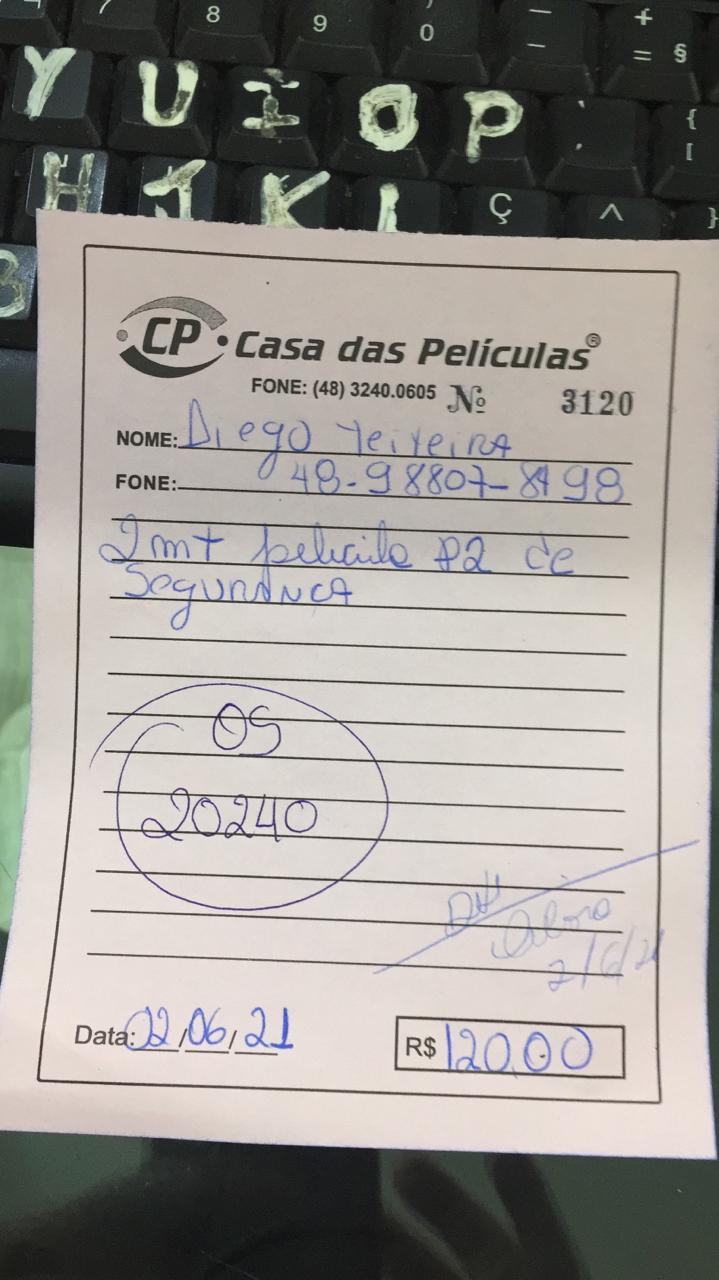 8 9 ) 0 _ - + = §
Y U I O P ` ' { [
H J K L Ç ^ }
B
CP Casa das Películas®
FONE: (48) 3240.0605 Nº 3120
NOME: Diego Teixeira
FONE: 48-98807-8198
2 mt pelicula P2 de
SEGURANCA
OS
20240
2/6/21
Data: 02/06/21 R$ 120,00